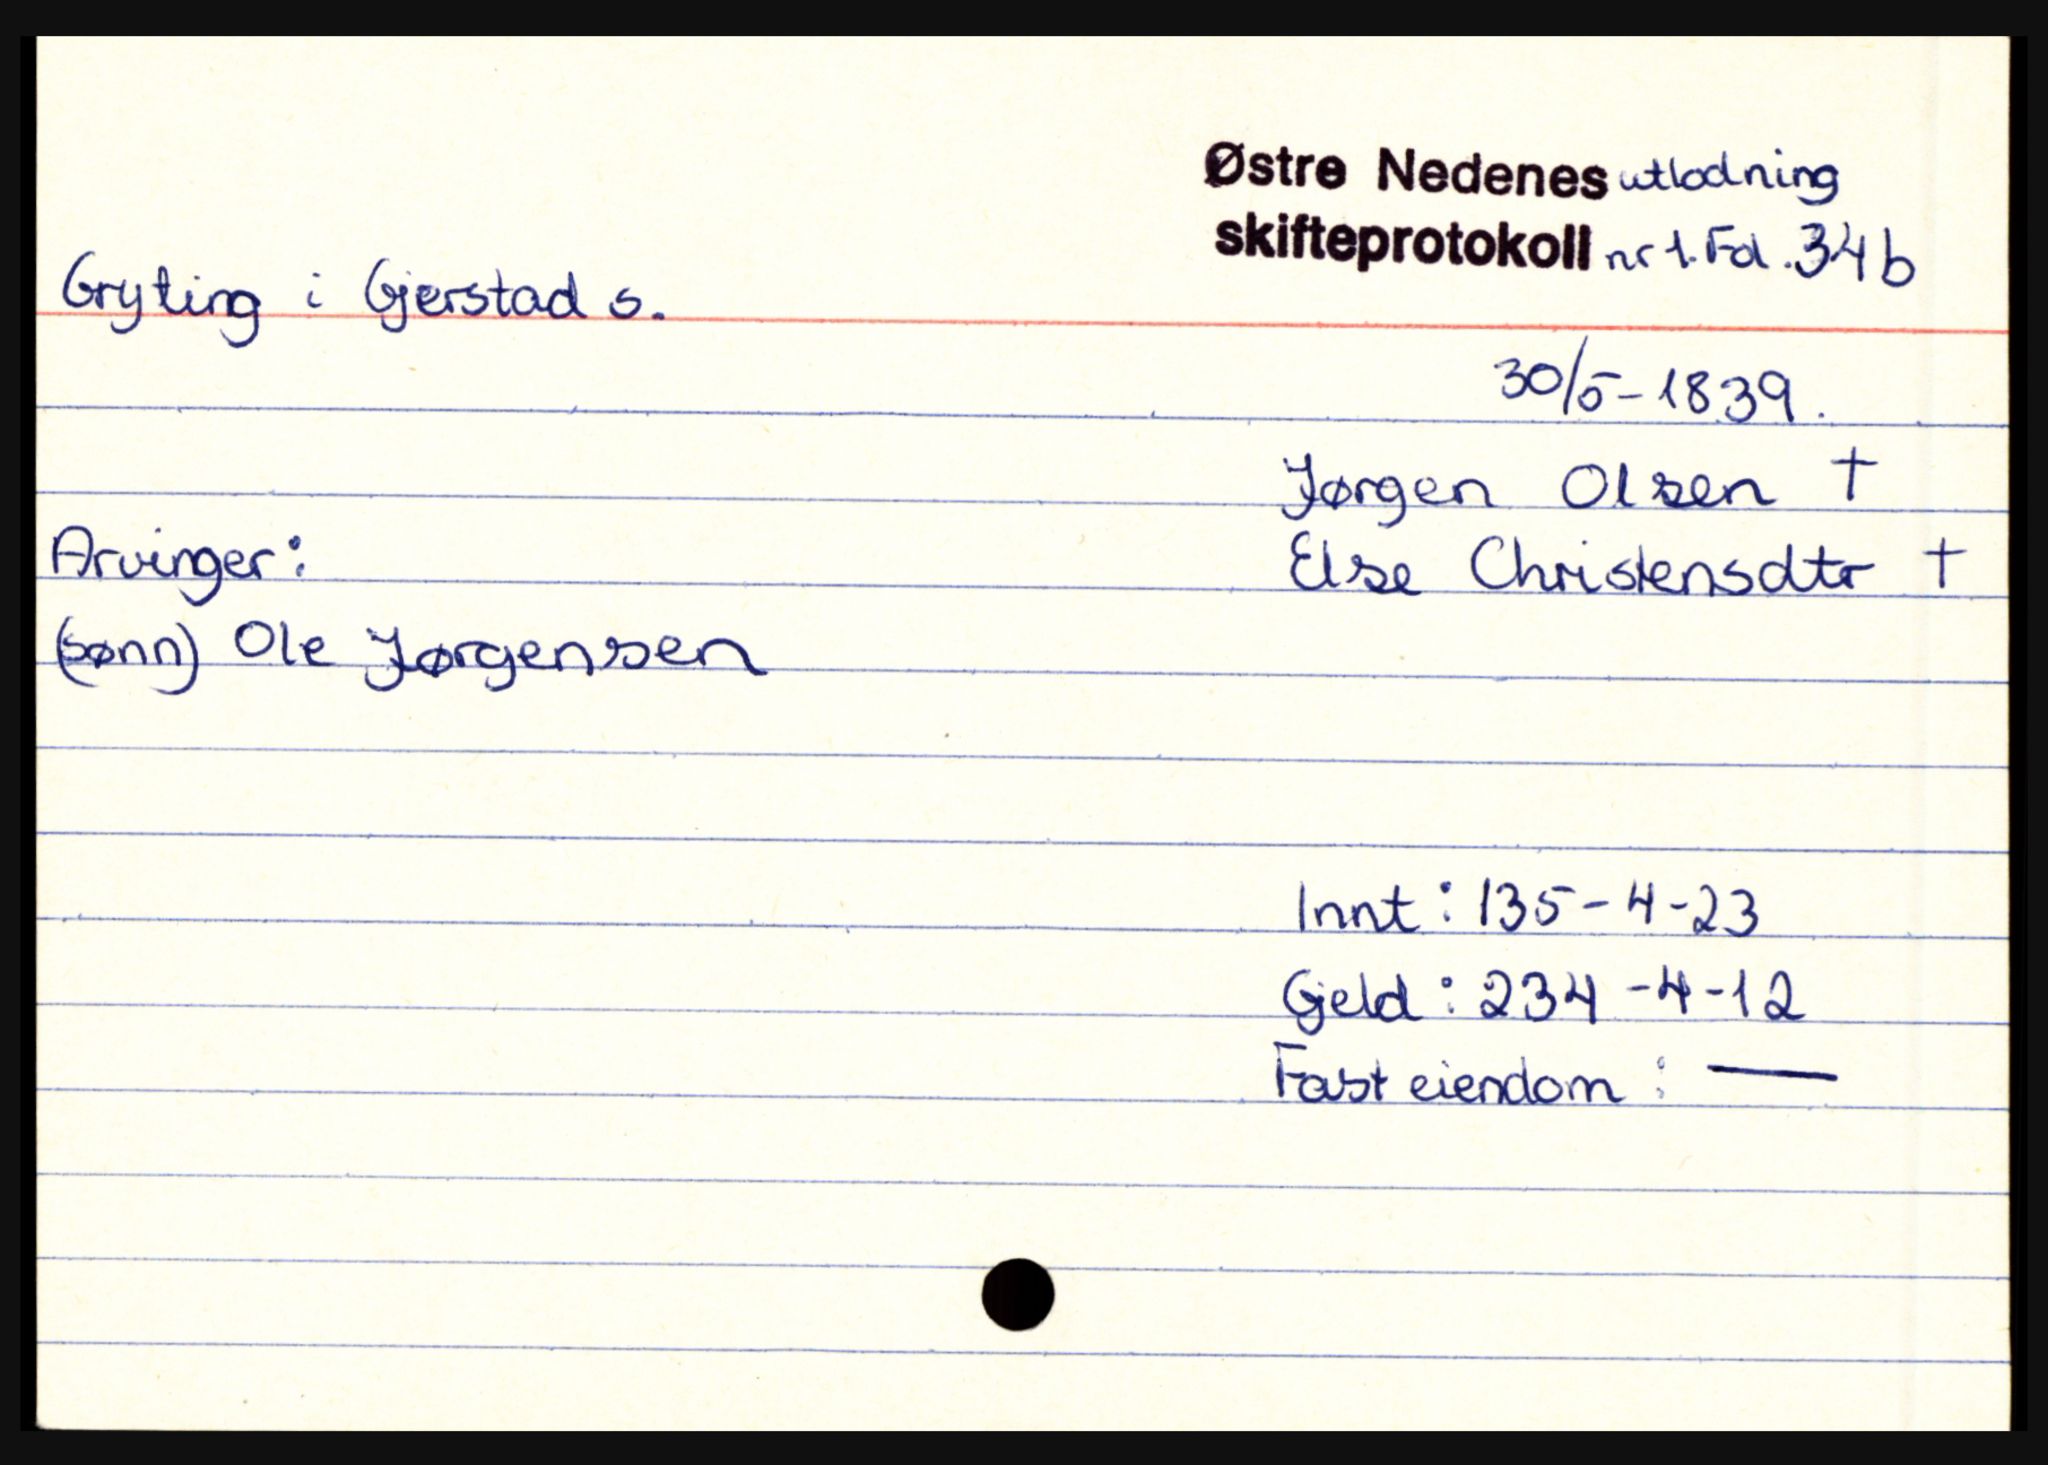 Østre Nedenes utlodning
skifteprotokoll nr 1. Fol. 34b
Gryting i Gjerstad s.
30/5-1839.
Jørgen Olsen †
Arvinger:
Else Christensdtr †
(sønn) Ole Jørgensen
Innt: 135-4-23
Gjeld: 234-4-12
Fast eiendom: —